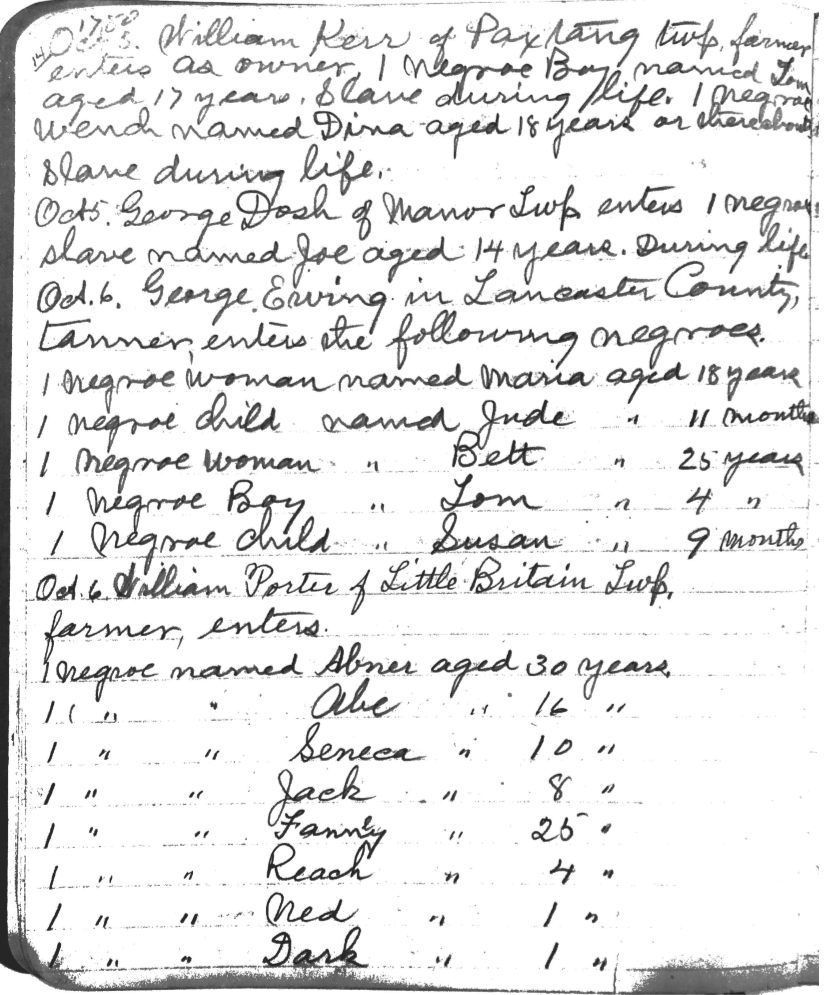 1780
Oct 5. William Kerr of Paxtang twp, farmer
enters as owner, 1 Negroe Boy named Tom
aged 17 years. Slave during life. 1 Negroe
wench named Dina aged 18 years or thereabouts
slave during life.
Oct 5. George Dosh of Manor Twp enters 1 negroe
slave named Joe aged 14 years. During life
Oct. 6. George Ewing in Lancaster County,
tanner, enters the following negroes.
1 negroe woman named Maria aged 18 years
1 negroe child named Jude " 11 months
1 negroe woman " Bett " 25 years
1 negroe Boy " Tom " 4 "
1 negroe child " Susan " 9 months
Oct. 6. William Porter of Little Britain Twp.
farmer, enters.
1 negroe named Abner aged 30 years.
1 " " Abe " 16 "
1 " " Seneca " 10 "
1 " " Jack " 8 "
1 " " Fanny " 25 "
1 " " Reach " 4 "
1 " " Ned " 1 "
1 " " Dark " 1 "